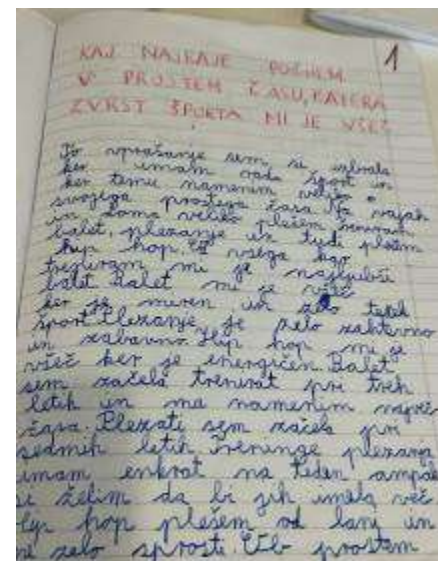 1
KAJ NAJRAJE POČNEM
V PROSTEM ČASU, KATERA
ZVRST ŠPORTA MI JE VŠEČ
To vprašanje sem si izbrala
ker imam rada šport in
ker temu namenim veliko
svojega prostega časa. Na vajah
in doma veliko plešem
balet, plezanje in tudi plešem
hip hop. vsega kar
treniram mi je najljubši
balet. Balet mi je všeč
ker je miren in zelo težek
šport. Plezanje je zelo zahtevno
in zabavno. Hip hop mi je
všeč ker je energičen. Balet
sem začela trenirat pri treh
letih in mu namenim največ
časa. Plezati sem začela pri
sedmih letih, treninge plezanja
imam enkrat na teden ampak
si želim da bi jih imela več
hip hop plešem od lani in
zelo sprosti. prostem